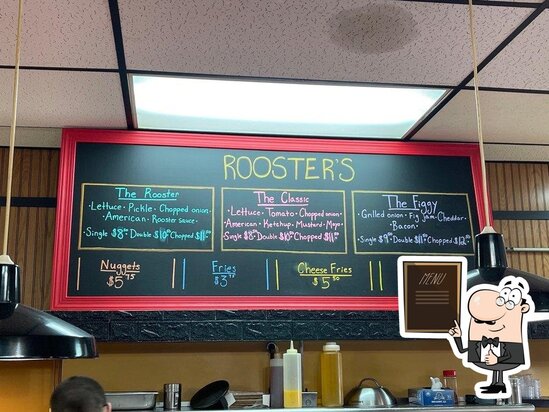 ROOSTER'S
The Rooster
Lettuce • Pickle • Chopped onion
• American • Rooster sauce •
Single $8.00 Double $10.00 Chopped $11.00
The Classic
• Lettuce • Tomato • Chopped onion
• American • Ketchup • Mustard • Mayo
Single $8.00 Double $10.00 Chopped $11.00
The Figgy
• Grilled onion • Fig jam • Cheddar
• Bacon •
Single $9.00 Double $11.00 Chopped $12.00
Nuggets
$5.75
Fries
$3
Cheese Fries
$5.50
MENU